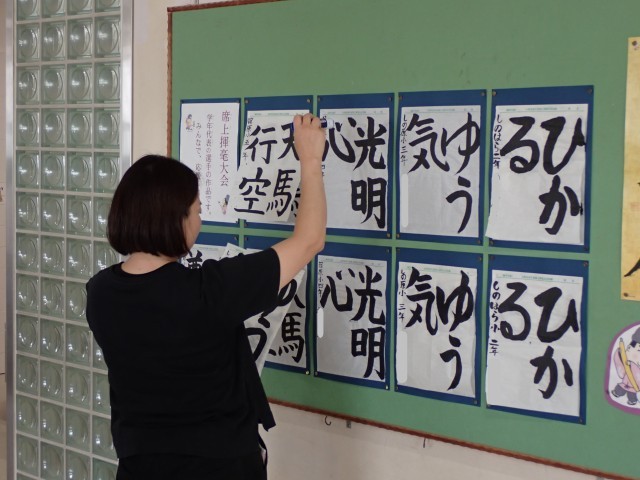 ひか
る
しのはら小 二年
ゆう
気
しの原小 三年
光明
心
天馬
行空
席上揮毫大会
学年代表の選手の作品です。
みんなで、応
ひか
る
しのはら小 二年
ゆう
気
しの原小 三年
光明
心
馬